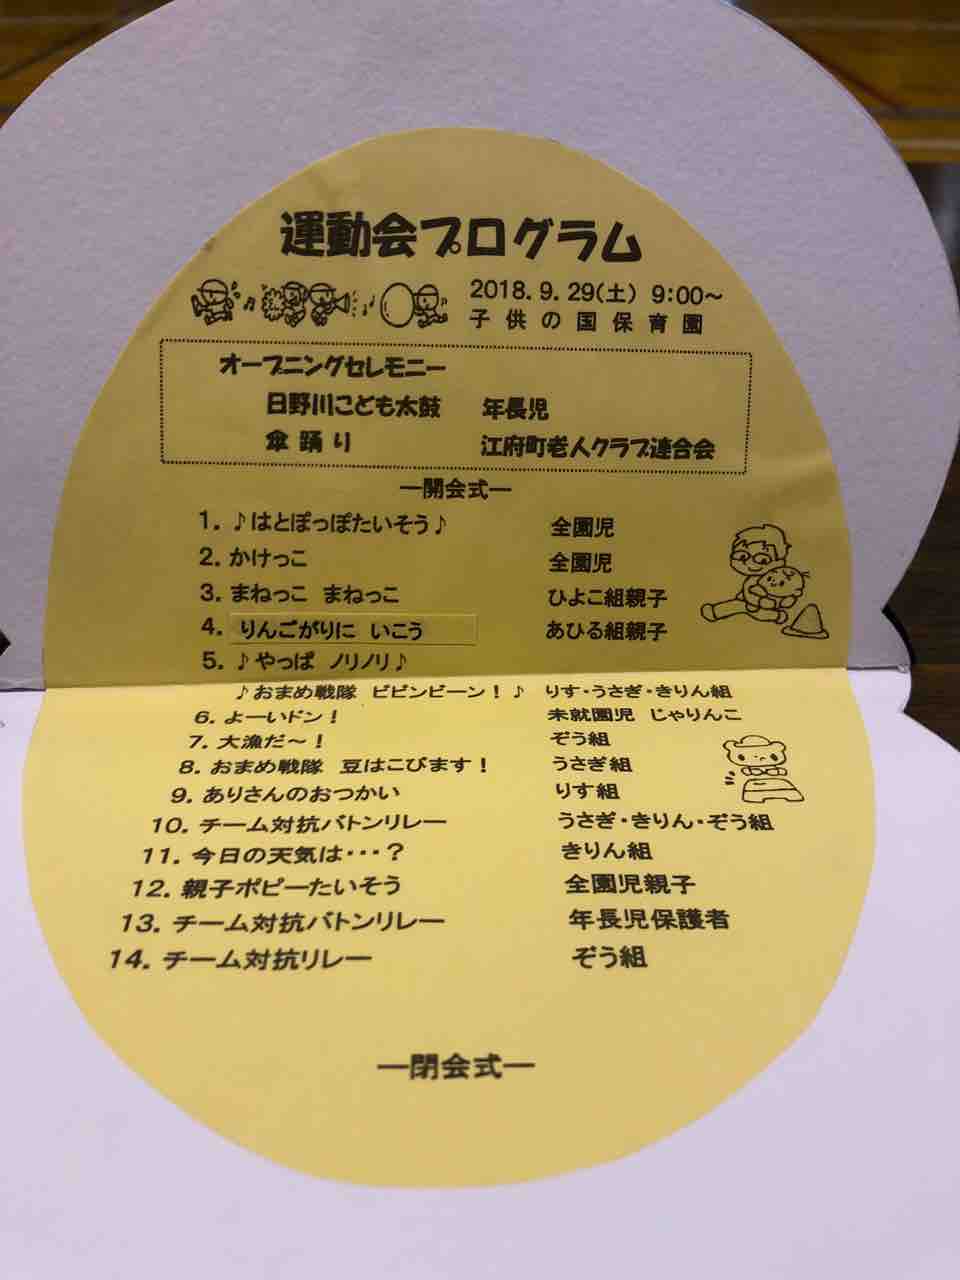 運動会プログラム
2018.9.29(土) 9:00～
子供の国保育園
オープニングセレモニー
日野川こども太鼓 年長児
傘踊り 江府町老人クラブ連合会
―開会式―
1. ♪はとぽっぽたいそう♪ 全園児
2. かけっこ 全園児
3. まねっこ まねっこ ひよこ組親子
4. りんごがりに いこう あひる組親子
5. ♪やっぱ ノリノリ♪
♪おまめ戦隊 ビビンビーン！♪ りす・うさぎ・きりん組
6. よーいドン！ 未就園児 じゃりんこ
7. 大漁だ～！ ぞう組
8. おまめ戦隊 豆はこびます！ うさぎ組
9. ありさんのおつかい りす組
10. チーム対抗バトンリレー うさぎ・きりん・ぞう組
11. 今日の天気は・・・？ きりん組
12. 親子ポピーたいそう 全園児親子
13. チーム対抗バトンリレー 年長児保護者
14. チーム対抗リレー ぞう組
―閉会式―